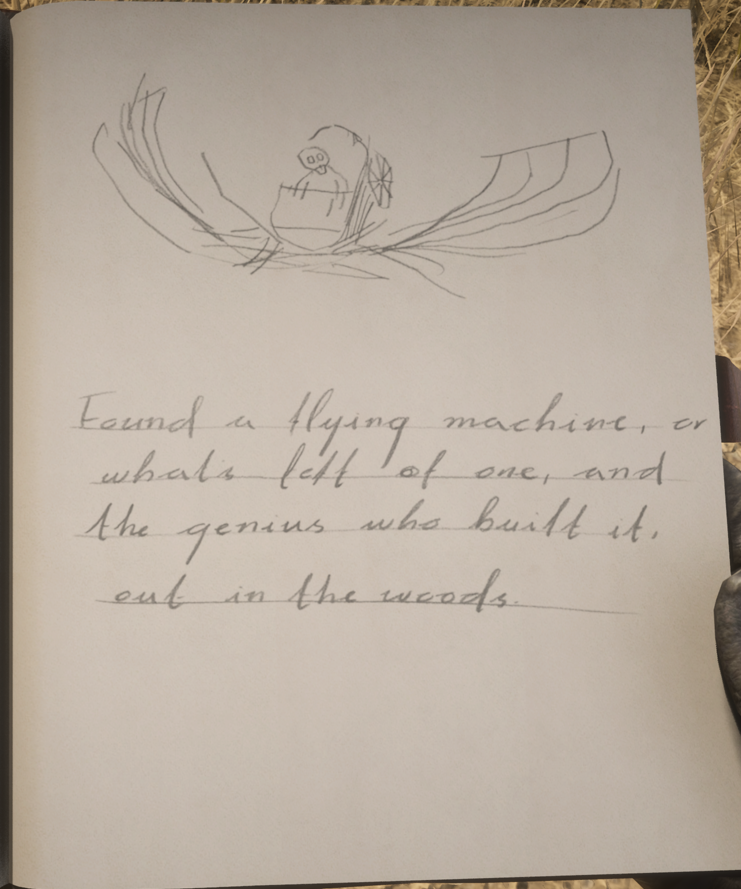 Found a flying machine, or
whats left of one, and
the genius who built it,
out in the woods.